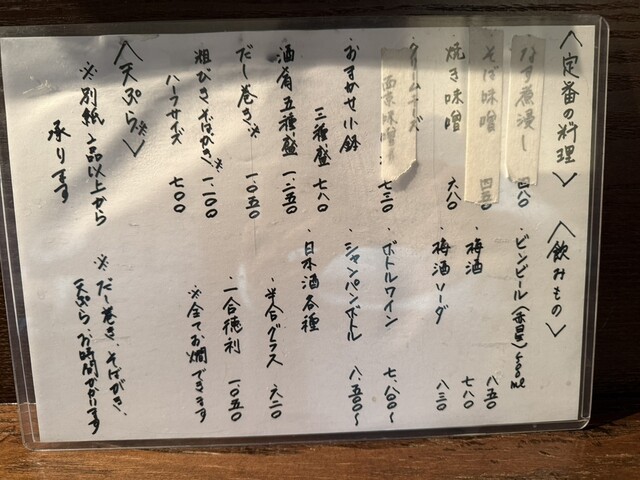 〈定番の料理〉
なす煮浸し 四八〇
そば味噌 四五〇
焼き味噌 六八〇
クリームチーズ
西京味噌 七三〇
おまかせ小鉢
三種盛 七八〇
酒肴五種盛 一、二五〇
だし巻き※ 一、〇五〇
粗びきそばがき※ 一、一〇〇
ハーフサイズ 七〇〇
〈天ぷら※〉
※別紙 2品以上から
承ります
〈飲みもの〉
・ビンビール(赤星)500ml 八五〇
・梅酒 七八〇
・梅酒ソーダ 八三〇
・ボトルワイン 七、八〇〇〜
・シャンパンボトル 八、五〇〇〜
・日本酒各種
・半合グラス 六二〇
・一合徳利 一、〇五〇
※全てお燗できます
※だし巻き、そばがき、
天ぷら、お時間かかります